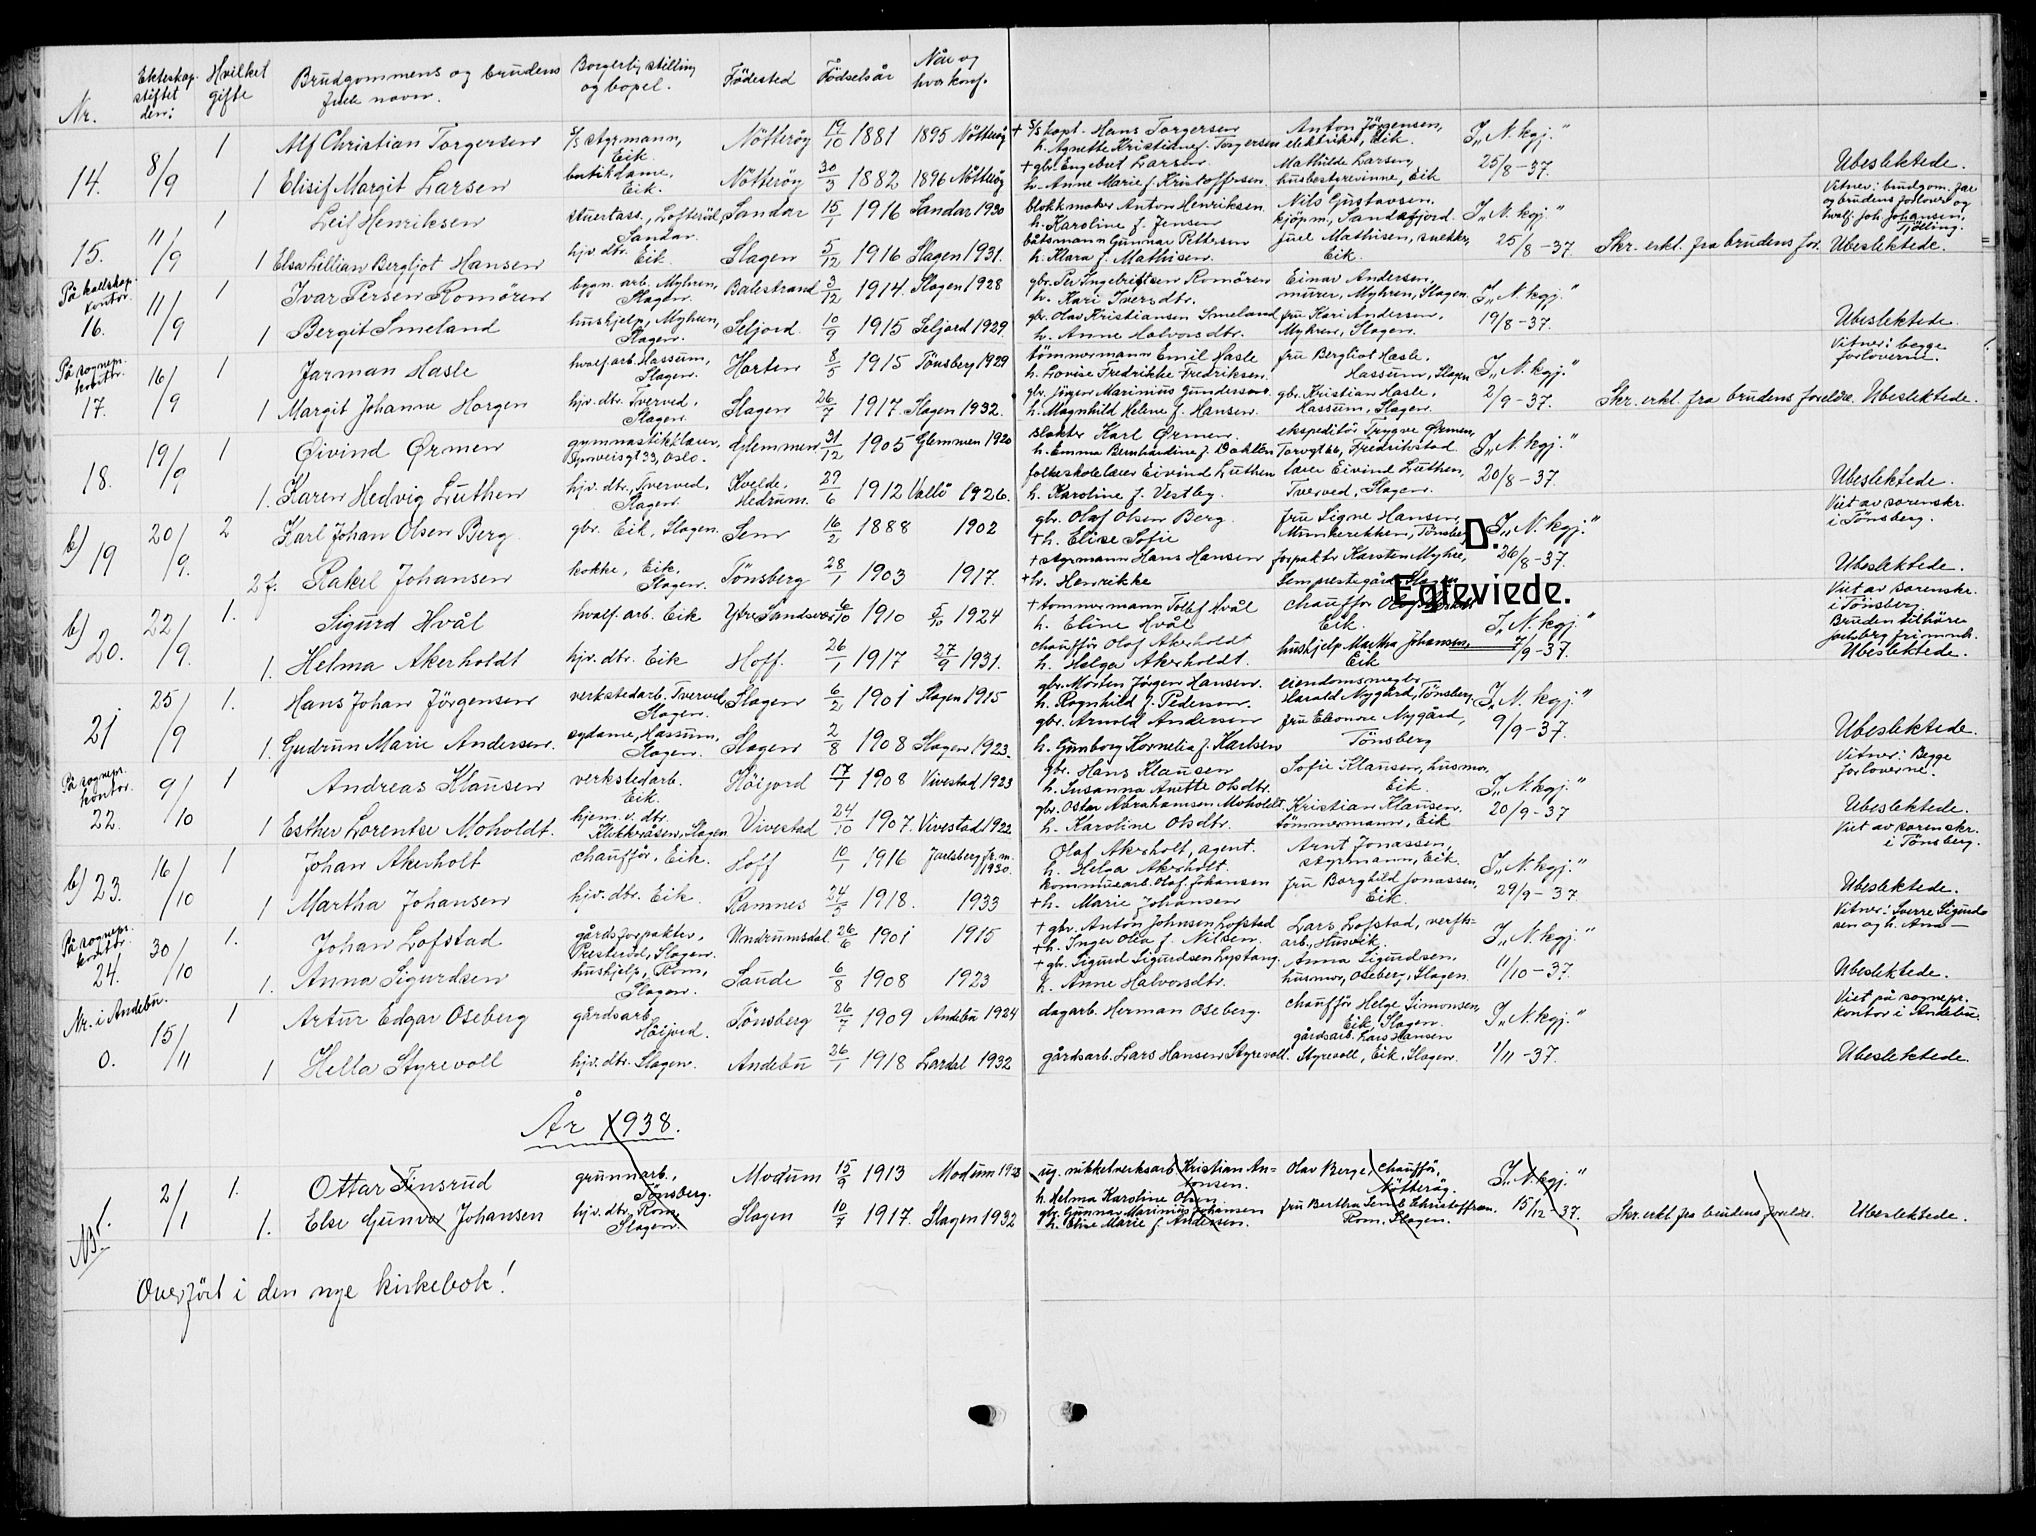 Nr. Ekteskap stiftet den: Hvilket gifte Brudgommens og brudens fulle navn. Borgerlig stilling og bopel. Fødested Fødselsår Når og hvor konf.
14. 8/9 1 Alf Christian Torgersen s/s styrmann, Eik. Nötteröy 19/10 1881 1895 Nötteröy + s/s kapt. Hans Torgersen h. Agnette Kristine f. Torgersen Anton Jörgensen, elektriker, Eik. I "N. kgj." 25/8-37.
1 Elisif Margit Larsen butikdame, Eik. Nötteröy 30/3 1882 1896 Nötteröy + gbr. Engebret Larsen h. Anne Marie f. Kristoffersen. Mathilde Larsen, husbestyrerinne, Eik Ubeslektede.
15. 11/9 1 Leif Henriksen stuertass., Lofteröd, Sandar. Sandar 15/1 1916 Sandar 1930 blokkmaker Anton Henriksen h. Karoline f. Jensen Nils Gustavsen, kjöpm., Sandefjord. I "N. kgj." 25/8-37. Vitner: brudgom. far og brudens forlover og hvalf. Joh. Johansen, Tjölling.
1 Elsa Lillian Bergljot Hansen hjv. dtr. Eik. Slagen 5/12 1916 Slagen 1931. båtsmann Gunnar Pettersen h. Klara f. Mathisen. Juel Mathisen, snekker, Eik. Skr. erkl. fra brudens for. Ubeslektede.
På kallskap. kontor. 16. 11/9 1 Ivar Persen Romören bygn. arb. Myhren, Slagen. Balestrand 3/12 1914. Slagen 1928 gbr. Per Ingebrigtsen Romören h. Kari Iversdtr. Einar Andersen, murer, Myhren, Slagen. I "N. kgj." 19/8-37.
1 Bergit Smeland hushjelp, Myhren, Slagen. Seljord. 10/9 1915 Seljord 1929. gbr. Olav Kristiansen Smeland h. Anne Halvorsdtr. fru Kari Andersen, Myhren, Slagen. Ubeslektede.
På sognepr. kontor. 17. 16/9 1 Jarman Hasle hvalf. arb. Hassum, Slagen. Horten 8/5 1915 Tönsberg 1929 tömmermann Emil Hasle h. Lovise Fredrikke Fredriksen. fru Bergliot Hasle, Hassum, Slagen I "N. kgj." 2/9-37. Vitner: begge forloverne.
1 Margit Johanne Horgen hjv. dtr. Tverved, Slagen. Slagen 26/7 1917. Slagen 1932. gbr. Jörgen Marinius Gundersen h. Magnhild Helene f. Hansen. gbr. Kristian Hasle, Hassum, Slagen. Skr. erkl. fra brudens foreldre. Ubeslektede.
18. 19/9 1 Øivind Ørmen gymnastikklærer, 33, Oslo. Glemmen 31/12 1905 Glemmen 1920 slakter Karl Ørmen h. Emma Bernhardine f. Dahlen ekspeditör Trygve Ørmen, Torvgt 66, Fredrikstad. I "N. kgj." 20/8-37.
1. Karen Hedvig Luthen hjv. dtr., Tverved, Slagen. Kvelde, Hedrum. 27/6 1912 Vallö 1926. folkeskolelærer Eivind Luthen h. Karoline f. Vestby. lærer Eivind Luthen, Tverved, Slagen. Ubeslektede.
b) 19 20/9. 2 Karl Johan Olsen Berg gbr. Eik, Slagen. Sem 16/2 1888 1902 gbr. Olaf Olsen Berg. + h. Elise Sofie fru Signe Hansen, Munkerekken, Tönsberg D. I "N. kgj." 26/8-37. Viet av sorenskr. i Tönsberg.
2 f. Rakel Johansen kokke, Eik, Slagen. Tönsberg 28/1 1903 1917. + styrmann Hans Hansen + h. Henrikke forpakter Karsten Myhre, Semprestegård, Slagen Ubeslektede.
Egteviede.
b) 20. 22/9. 1. Sigurd Hvål hvalf. arb. Eik Ytre Sandsvær 6/10 1910 5/10 1924 + tömmermann Tollef Hvål h. Eline Hvål chaufför Olaf Eik. I "N. kgj." 7/9-37. Viet av sorenskr. i Tönsberg Bruden tilhörer Jarlsberg frimenh.
1. Helma Akerholdt hjv. dtr. Eik Hoff. 26/1 1917 27/9 1931. chaufför Olaf Akerholdt h. Helga Akerholdt. hushjelp Martha Johansen, Eik Ubeslektede.
21 25/9 1. Hans Johan Jörgensen verkstedarb. Tverved Slagen. Slagen 6/2 1901 Slagen 1915 gbr. Morten Jörgen Hansen. h. Ragnhild f. Pedersen. eiendomsmegler Harald Nygård, Tönsberg. I "N. kgj." 9/9-37.
1. Gudrun Marie Andersen. sydame, Hassum, Slagen. Slagen 2/8 1908 Slagen 1923. gbr. Arnold Andersen h. Gunborg Kornelia f. Karlsen fru Eleonore Nygård, Tönsberg Ubeslektede.
På sognepr. kontor. 22. 9/10 1 Andreas Klausen verkstedarb. Eik. Höijord 17/1 1908 Vivestad 1923 gbr. Hans Klausen h. Susanna Anette Olsdtr. Sofie Klausen, husmor, Eik. I "N. kgj." 20/9-37 Vitner: Begge forloverne.
1 Esther Lorentse Moholdt. hjem. v. dtr. Klikkråsen, Slagen Vivestad 24/10 1907. Vivestad 1922 gbr. Oskar Abrahamsen Moholdt. h. Karoline Olsdtr. Kristian Klausen, tömmermann, Eik Ubeslektede.
b) 23. 16/10 1 Johan Akerholt chaufför, Eik. Hoff 10/1 1916 Jarlsberg fr. m. 1930. Olaf Akerholt, agent. h. Helga Akerholt. Arnt Jonassen, styrmann, Eik. I "N. kgj." 29/9-37. Viet av sorenskr. i Tönsberg.
1 Martha Johansen hjv. dtr. Eik. Ramnes 24/5 1918. 1933 kommunearb. Olaf Johansen + h. Marie Johansen fru Borghild Jonassen, Eik. Ubeslektede.
På sognepr. kontor. 24. 30/10 1. Johan Lofstad gårdsforpakter, Presteröd, Slagen. Undrumsdal 26/6 1901 1915 + gbr. Anton Johnsen Lofstad + h. Inger Olea f. Nilsen. Lars Lofstad, verfts- arb., Husvik. I "N. kgj." 11/10-37. Vitner: Sverre Sigurdsen og h. Anna
1. Anna Sigurdsen hushjelp, Rom, Slagen. Saude 6/8 1908 1923 + gbr. Sigurd Sigurdsen Lystang. h. Anne Halvorsdtr. Anna Sigurdsen, husmor, Oseberg, Slagen. Ubeslektede.
Nr. i Andebu. 0. 15/11 1 Artur Edgar Oseberg gårdsarb. Höijord. Tönsberg 26/7 1909 Andebu 1924 dagarb. Herman Oseberg. chaufför Helge Simonsen, Eik, Slagen. I "N. kgj." 1/11-37. Viet på sognepr. kontor i Andebu.
1 Hella Styrevoll hjv. dtr. Slagen. Andebu 26/1 1918 Lardal 1932 gårdsarb. Lars Hansen Styrevoll. gårdsarb. Lars Hansen Styrevoll, Eik, Slagen. Ubeslektede.
År 1938.
1. 2/1 1. Ottar Finsrud grunnarb., Tönsberg. Modum 15/9 1913 Modum 1928 ug. nikkelverksarb. Kristian Antonsen. h. Helma Karoline Olsen. Olav Berge, chaufför, Nötteröy. I "N. kgj." 15/12-37.
NB! 1. Else Gunvor Johansen hjv. dtr. Rom, Slagen. Slagen 10/7 1917. Slagen 1932 gbr. Gunnar Marinius Johansen h. Elise Marie f. Andersen. fru Bertha Kristoffersen, Rom, Slagen. Skr. erkl. fra brudens foreldre. Ubeslektede.
Overfört i den nye kirkebok!